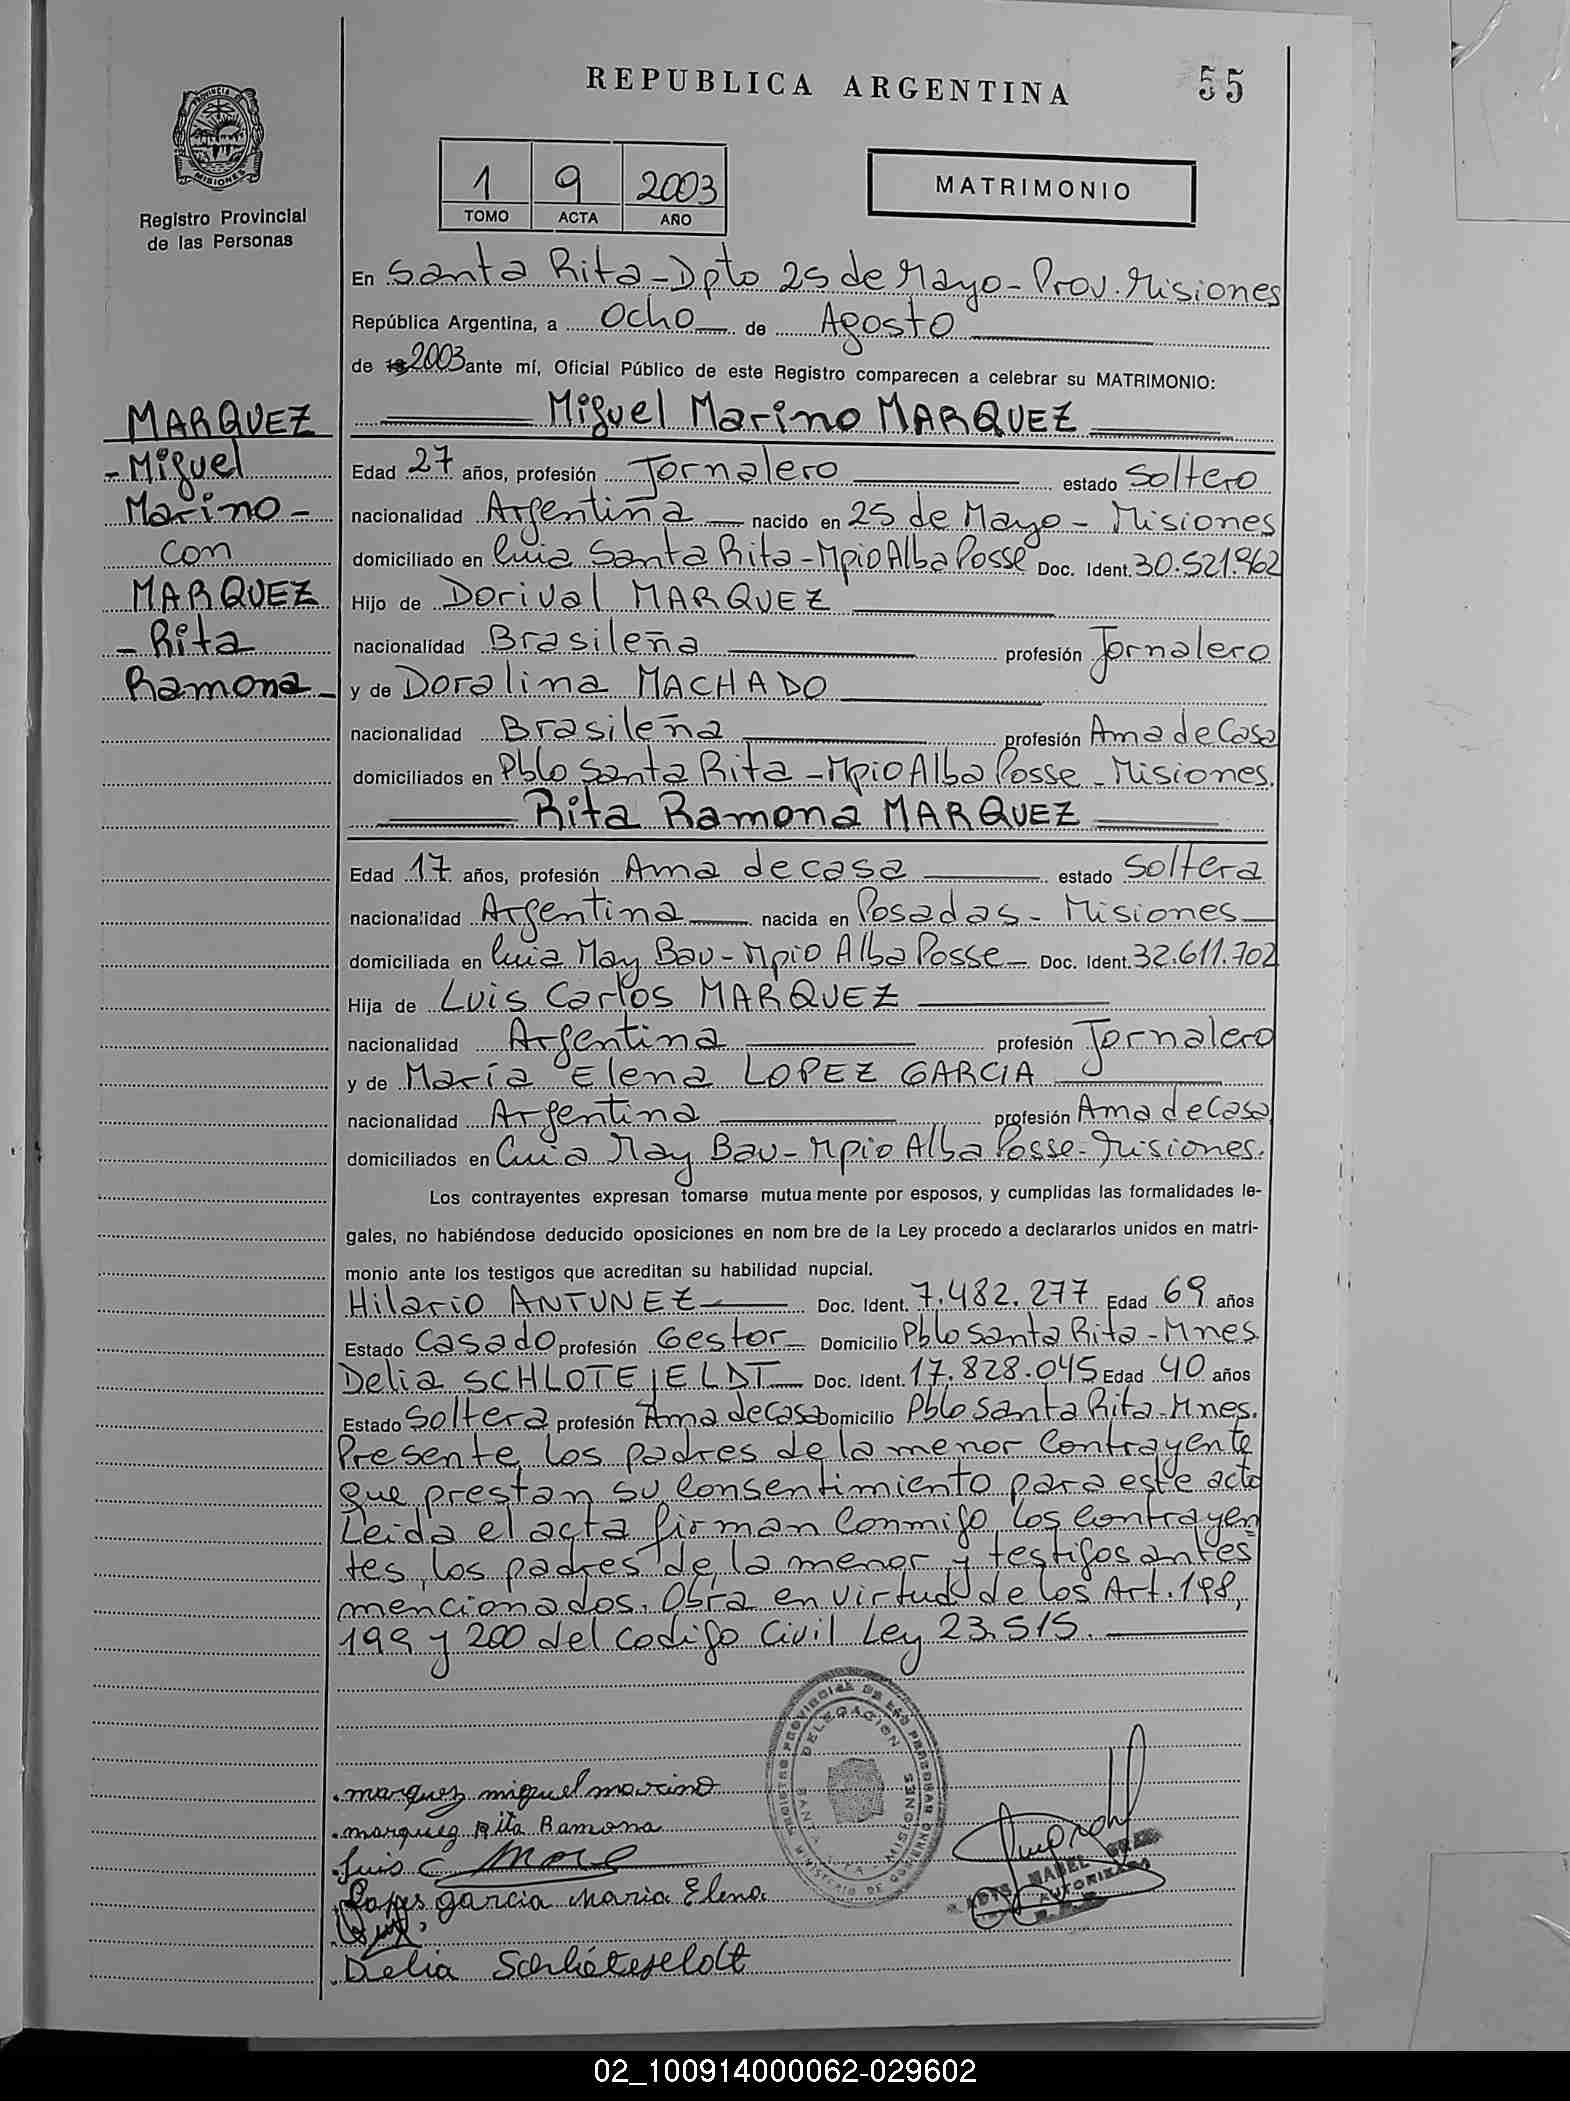 REPUBLICA ARGENTINA
55
PROVINCIA DE
MISIONES
Registro Provincial
de las Personas
1 9 2003
TOMO ACTA AÑO
MATRIMONIO
En Santa Rita - Dpto 25 de Mayo - Prov. Misiones
República Argentina, a Ocho de Agosto
de 19 2003 ante mí, Oficial Público de este Registro comparecen a celebrar su MATRIMONIO:
Miguel Marino MARQUEZ
MARQUEZ
- Miguel
Marino -
con
MARQUEZ
- Rita
Ramona -
Edad 27 años, profesión Jornalero estado Soltero
nacionalidad Argentina nacido en 25 de Mayo - Misiones
domiciliado en Cnia Santa Rita - Mpio Alba Posse Doc. Ident. 30.521.962
Hijo de Dorival MARQUEZ
nacionalidad Brasileña profesión Jornalero
y de Doralina MACHADO
nacionalidad Brasileña profesión Ama de Casa
domiciliados en Pblo Santa Rita - Mpio Alba Posse - Misiones.
Rita Ramona MARQUEZ
Edad 17 años, profesión Ama de casa estado Soltera
nacionalidad Argentina nacida en Posadas - Misiones
domiciliada en Cnia May Bau - Mpio Alba Posse - Doc. Ident. 32.611.702
Hija de Luis Carlos MARQUEZ
nacionalidad Argentina profesión Jornalero
y de María Elena LOPEZ GARCIA
nacionalidad Argentina profesión Ama de Casa
domiciliados en Cnia May Bau - Mpio Alba Posse - Misiones.
Los contrayentes expresan tomarse mutua mente por esposos, y cumplidas las formalidades le-
gales, no habiéndose deducido oposiciones en nom bre de la Ley procedo a declararlos unidos en matri-
monio ante los testigos que acreditan su habilidad nupcial.
Hilario ANTUNEZ Doc. Ident. 7.482.277 Edad 69 años
Estado Casado profesión Gestor Domicilio Pblo Santa Rita - Mnes
Delia SCHLOTEJELDT Doc. Ident. 17.828.045 Edad 40 años
Estado Soltera profesión Ama de Casa Domicilio Pblo Santa Rita - Mnes.
Presente los padres de la menor Contrayente
que prestan su Consentimiento para este acto
Leida el acta firman Conmigo, los Contrayen
tes, los padres de la menor y testigos antes
mencionados. Obra en virtud de los Art. 198,
199 y 200 del Codigo Civil Ley 23.515.
REGISTRO PROVINCIAL DE LAS PERSONAS
DELEGACION
SANTA RITA - MISIONES
MINISTERIO DE GOBIERNO
marquez miguel marino
marquez Rita Ramona
Luis C
Lopes garcia Maria Elena
MABEL
AUTORIZADA
Delia Schloteseldt
02_100914000062-029602